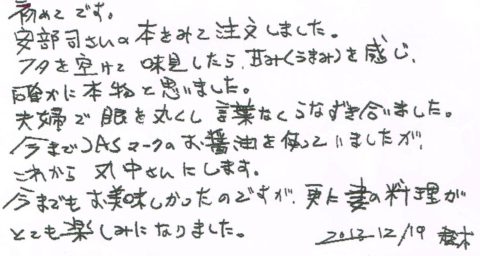 初めてです。
安部司さんの本をみて注文しました。
フタを空けて味見したら、甘み(うまみ)を感じ、
確かに本物と思いました。
夫婦で眼を丸くし言葉なくうなずき合いました。
今までJASマークのお醤油を使っていましたが、
これから丸中さんにします。
今までもお美味しかったのですが、更に妻の料理が
とても楽しみになりました。 2013 12/19